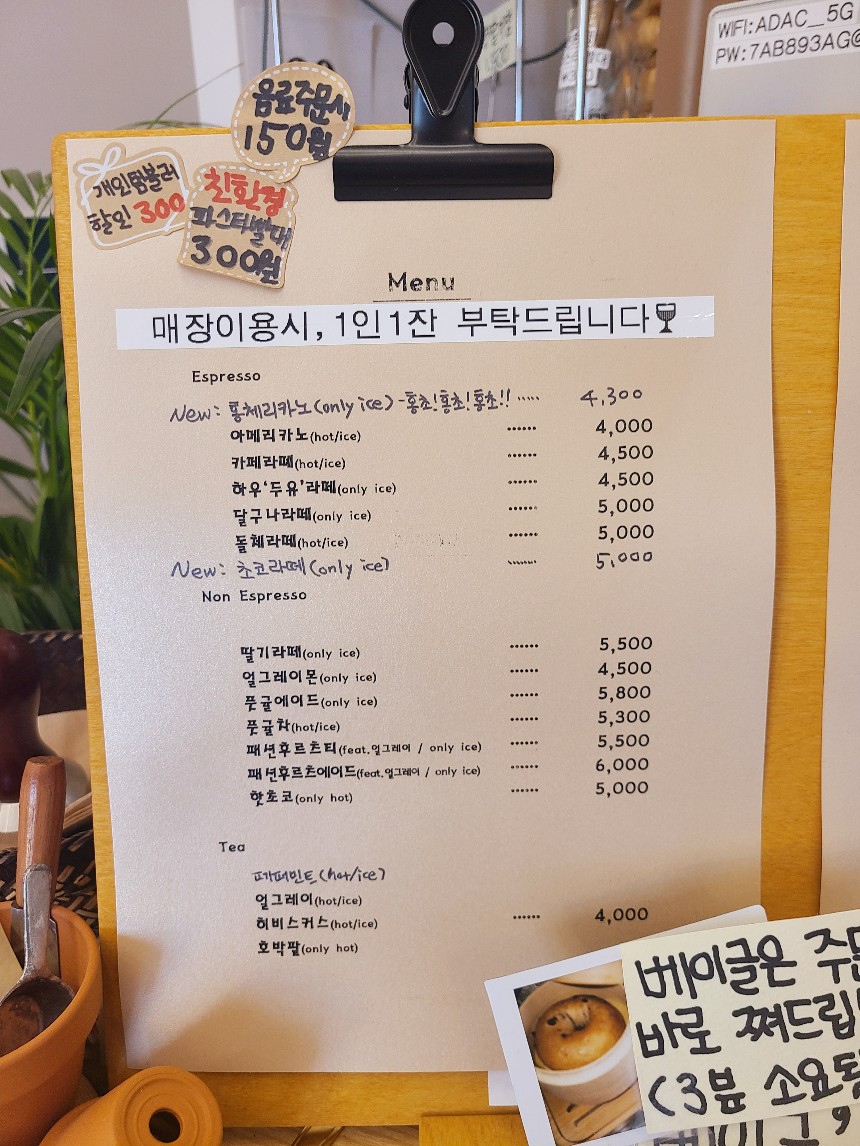 WIFI:ADAC__5G
PW:7AB893AG@
음료주문시
150원
개인텀블러
할인 300
친환경
파스타빨대
300원
Menu
매장이용시, 1인1잔 부탁드립니다
Espresso
New: 홍체리카노(only ice) -홍초!홍초!홍초!! ..... 4,300
아메리카노(hot/ice) ...... 4,000
카페라떼(hot/ice) ...... 4,500
하우'두유'라떼(only ice) ...... 4,500
달구나라떼(only ice) ...... 5,000
돌체라떼(hot/ice) ...... 5,000
New: 초코라떼(only ice) ...... 5,000
Non Espresso
딸기라떼(only ice) ...... 5,500
얼그레이몬(only ice) ...... 4,500
풋귤에이드(only ice) ...... 5,800
풋귤차(hot/ice) ...... 5,300
패션후르츠티(feat.얼그레이 / only ice) ...... 5,500
패션후르츠에이드(feat.얼그레이 / only ice) ...... 6,000
핫초코(only hot) ...... 5,000
Tea
페퍼민트(hot/ice)
얼그레이(hot/ice)
히비스커스(hot/ice) ...... 4,000
호박팥(only hot)
베이글은 주문
바로 쪄드립
(3분 소요됭